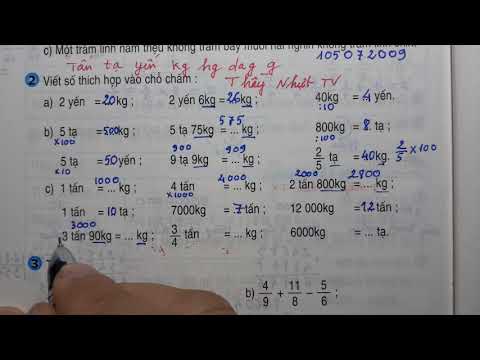 c) Một trăm linh năm triệu không trăm bảy mươi hai nghìn không trăm linh chín.
105072009
Tấn tạ yến kg hg dag g
2 Viết số thích hợp vào chỗ chấm :
Thầy Nhựt TV
a) 2 yến = 20kg ; 2 yến 6kg = 26kg ; 40kg = 4 yến.
:10
575
b) 5 tạ = 500kg ; 5 tạ 75kg = ... kg ; 800kg = 8 tạ ;
x100 500 :100
900 909 2/5 x 100
5 tạ = 50 yến ; 9 tạ 9kg = ... kg ; 2/5 tạ = 40kg.
x10
1000 4000 2000 2800
c) 1 tấn = ... kg ; 4 tấn = ... kg ; 2 tấn 800kg = ... kg ;
x1000
1 tấn = 10 tạ ; 7000kg = 7 tấn ; 12 000kg = 12 tấn ;
3000
3 tấn 90kg = ... kg ; 3/4 tấn = ... kg ; 6000kg = ... tạ.
3
b) 4/9 + 11/8 - 5/6 ;